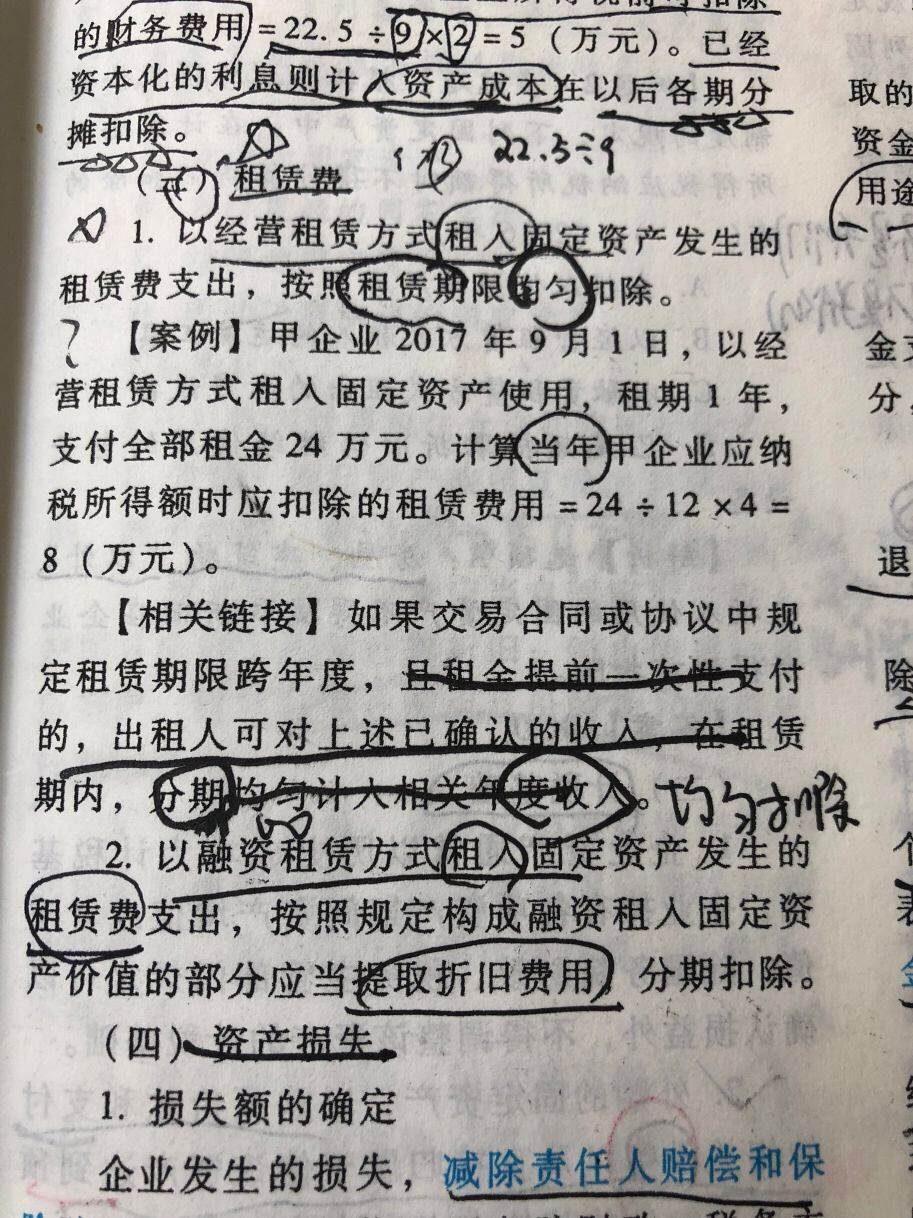 的财务费用=22.5÷9×2=5（万元）。已经
资本化的利息则计入资产成本在以后各期分
摊扣除。
22.5÷9
（三）租赁费
1. 以经营租赁方式租入固定资产发生的
租赁费支出，按照租赁期限均匀扣除。
【案例】甲企业 2017 年 9 月 1 日，以经
营租赁方式租入固定资产使用，租期 1 年，
支付全部租金 24 万元。计算当年甲企业应纳
税所得额时应扣除的租赁费用=24÷12×4=
8（万元）。
【相关链接】如果交易合同或协议中规
定租赁期限跨年度，且租金提前一次性支付
的，出租人可对上述已确认的收入，在租赁
期内，分期均匀计入相关年度收入。
均匀扣除
2. 以融资租赁方式租入固定资产发生的
租赁费支出，按照规定构成融资租入固定资
产价值的部分应当提取折旧费用，分期扣除。
（四）资产损失
1. 损失额的确定
企业发生的损失，减除责任人赔偿和保
取的
资金
用途
金支
分，
退
除